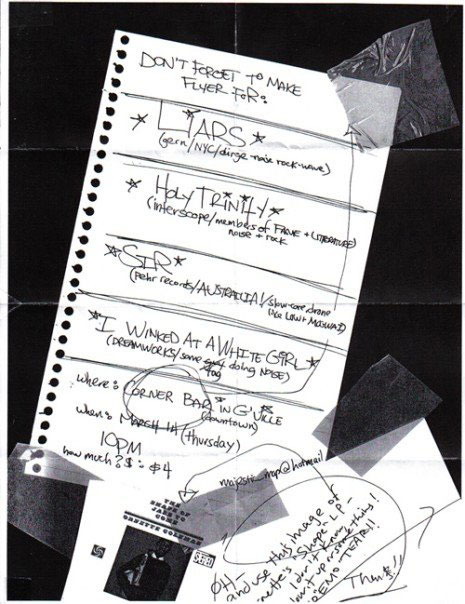 DON'T FORGET TO MAKE
FLYER FOR:
* LIARS *
(gern/NYC/dirge-noise rock-wave)
* HOLY TRINITY *
(interscope/members of FAUNE + LITERATURE)
noise + rock
* SIR *
(Pehr records/AUSTRALIA!/slow-core drone
like LOW + MOGWAI)
* I WINKED AT A WHITE GIRL *
(DREAMWORKS/some guy doing NOISE)
fag
where: CORNER BAR IN G'VILLE
(downtown)
when: MARCH 14 (thursday)
10PM
how much?$: $4
majestic_map@hotmail
THE
SHAPE OF
JAZZ TO
COME
ORNETTE COLEMAN
OH!
and use this image of
ornette's "Shape" LP-
I don't know
blow it up or something!
EMO TEAR!!
Thanx!!